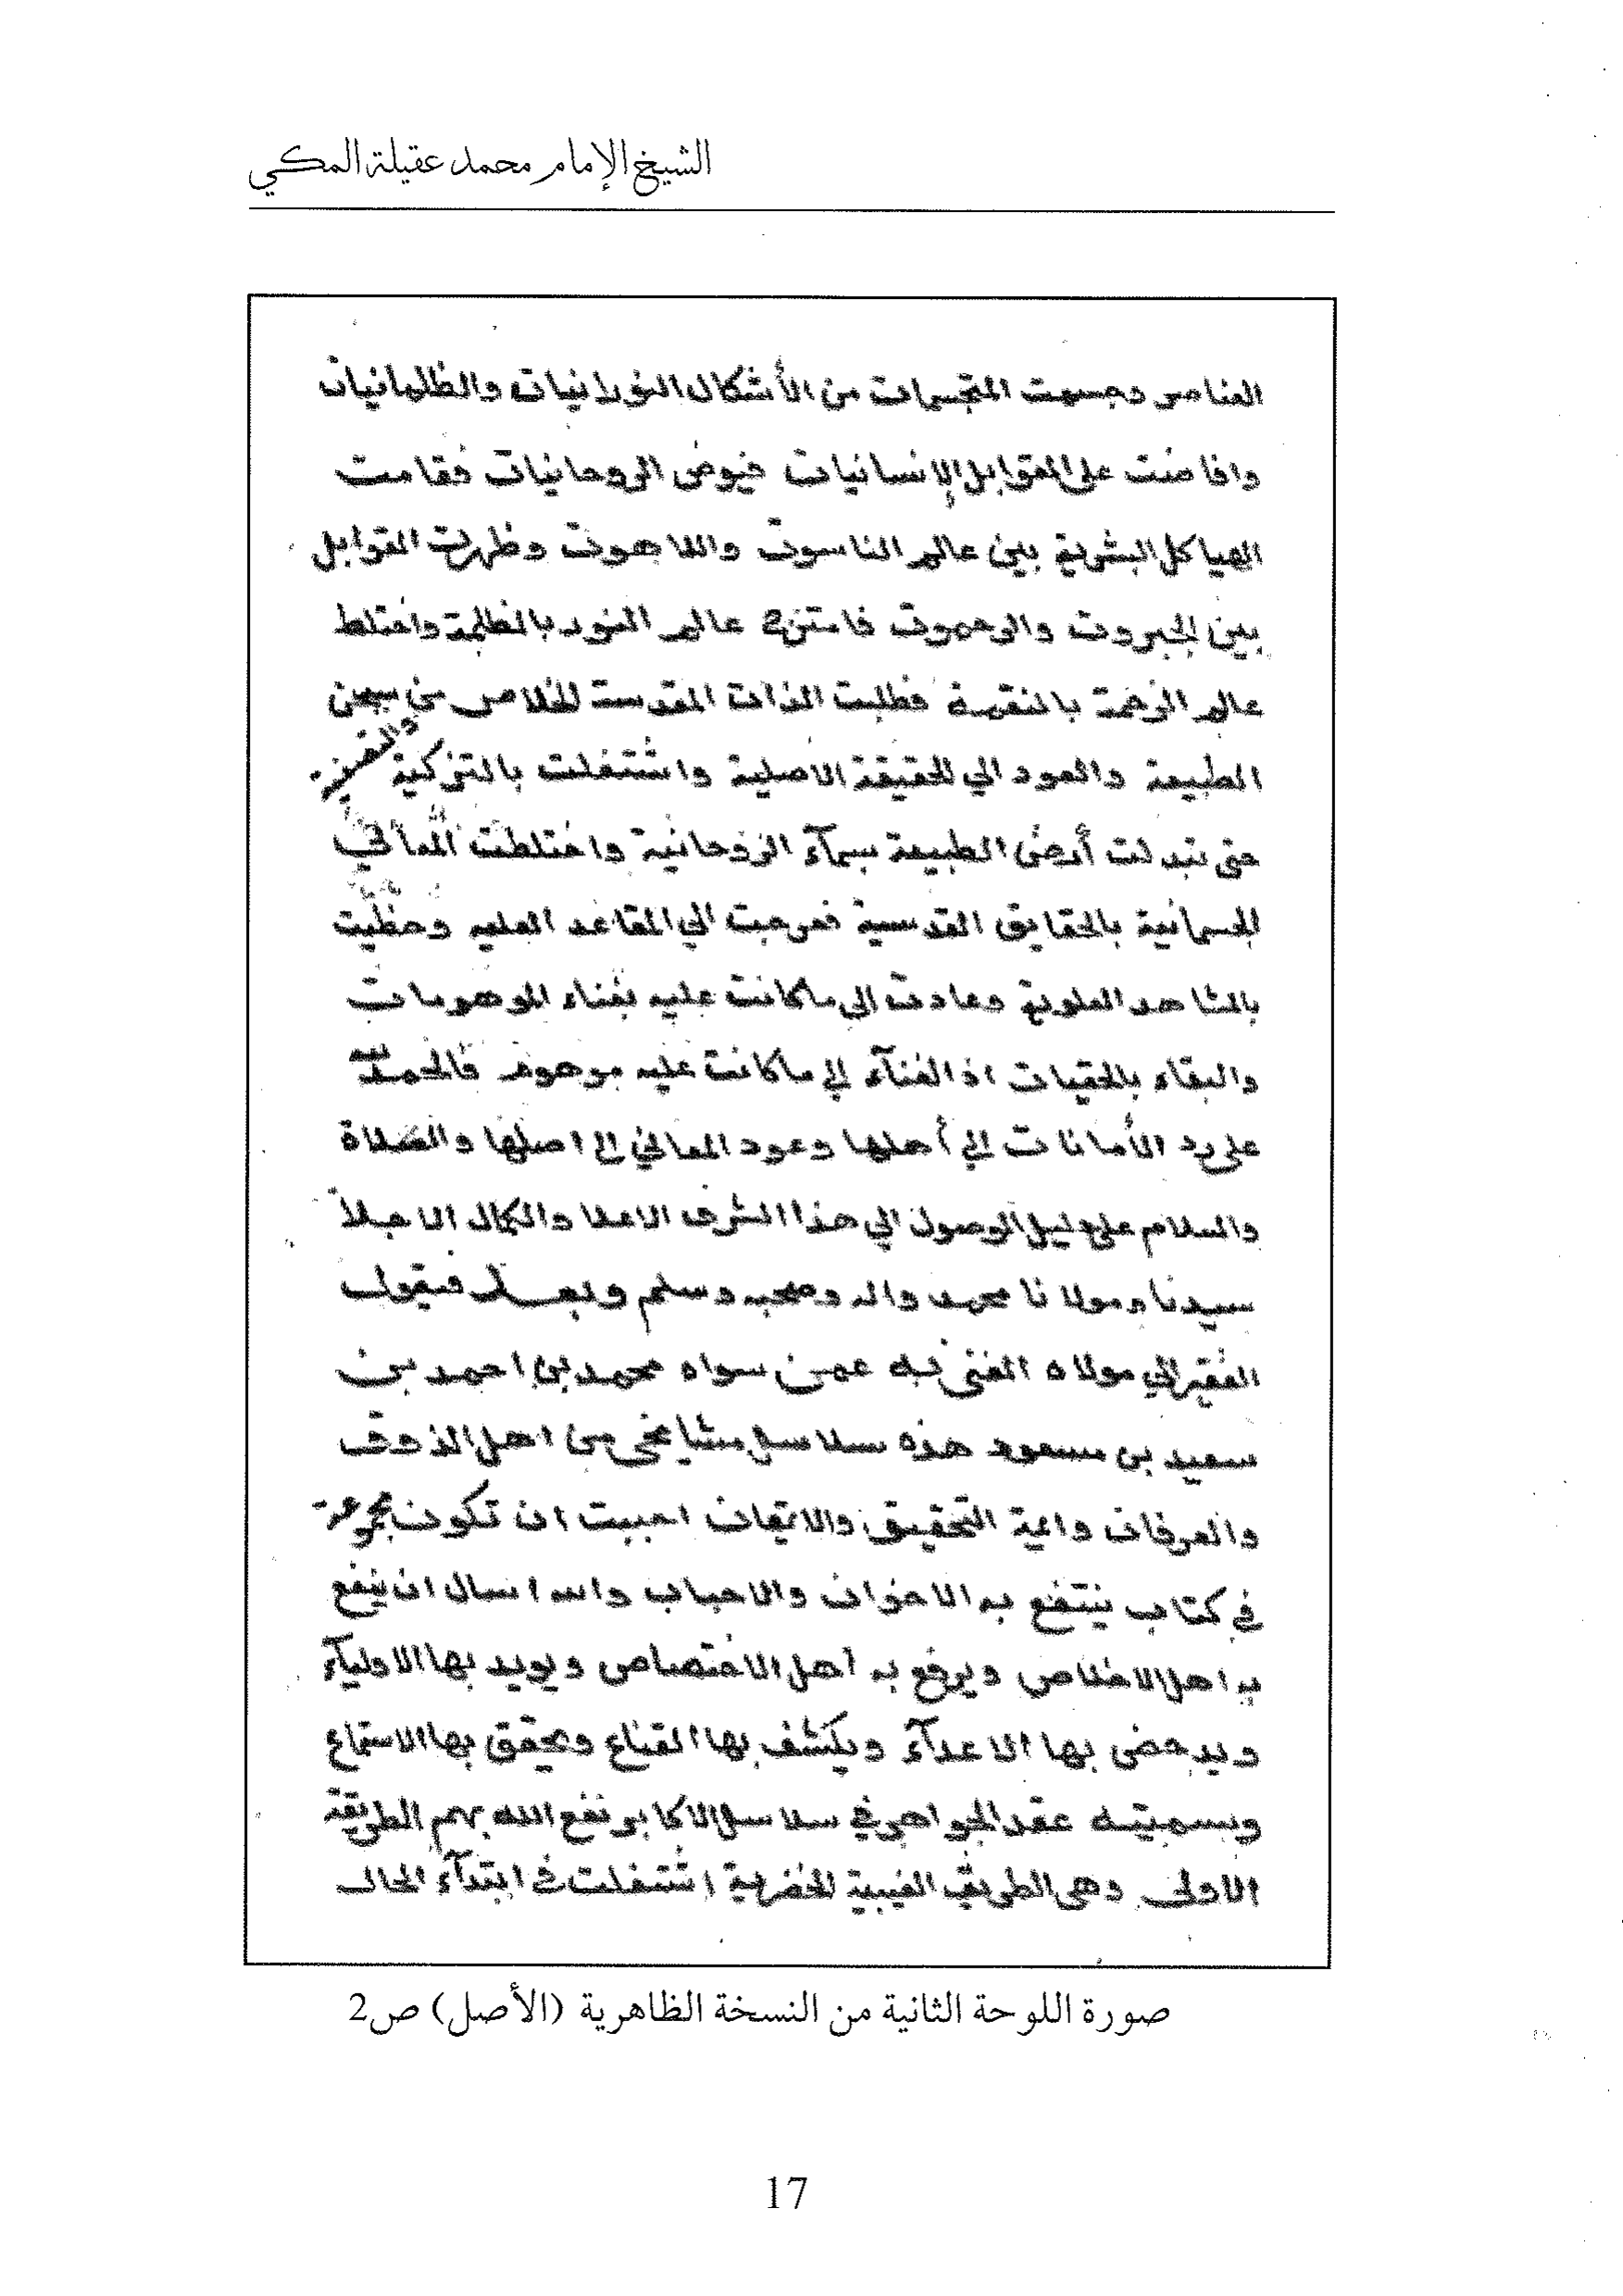 الشيخ الإمام محمد عقيلة المكي
العناصر وجسمت المتجسمات من الأشكال النورانيات والظلمانيات
وافاضت على القوابل الإنسانيات فيوض الروحانيات فقامت
الهياكل البشرية بين عالم الناسوت واللاهوت وظهرت القوابل
بين الجبروت والرحموت فامتزج عالم النور بالظلمة واختلط
عالم الرحمة بالنقمة فطلبت الذات المقدسة الخلاص من سجن
الطبيعة والعود الي الحقيقة الاصلية واشتغلت بالتزكية والتصفية
حتى تبدلت أرض الطبيعة بسمآء الروحانية واختلطت المعاني
الجسمانية بالحقايق القدسية فعرجت الي المقاعد العليه وحظيت
بالمشاهد العلوية وعادت الى ماكانت عليه بفناء الموهومات
والبقاء بالحقيات اذ الفنآء الي ماكانت عليه موهوم فالحمد لله
على رد الأمانات الي أهلها وعود المعاني الي اصلها والصلاة
والسلام على دليل الوصول الي هذا الشرف الاعلا والكمال الاجلا
سيدنا ومولانا محمد واله وصحبه وسلم وبعد فيقول
الفقير الي مولاه الغنى به عمن سواه محمد بن احمد بن
سعيد بن مسعود هذه سلاسل مشايخى من اهل الذوق
والعرفان وائمة التحقيق والاتقان احببت ان تكون مجموعة
في كتاب ينتفع به الاخوان والاحباب والله اسال ان ينفع
به اهل الاخلاص ويرفع به اهل الاختصاص ويويد بها الاوليآء
ويدحض بها الاعدآء ويكشف بها القناع ويحقق بها الاستماع
وسميته عقد الجواهر في سلاسل الاكابر نفع الله بهم الطريقة
الاولى وهى الطريق الغيبية الخضرية اشتغلت في ابتدآء الحال
صورة اللوحة الثانية من النسخة الظاهرية (الأصل) ص2
17